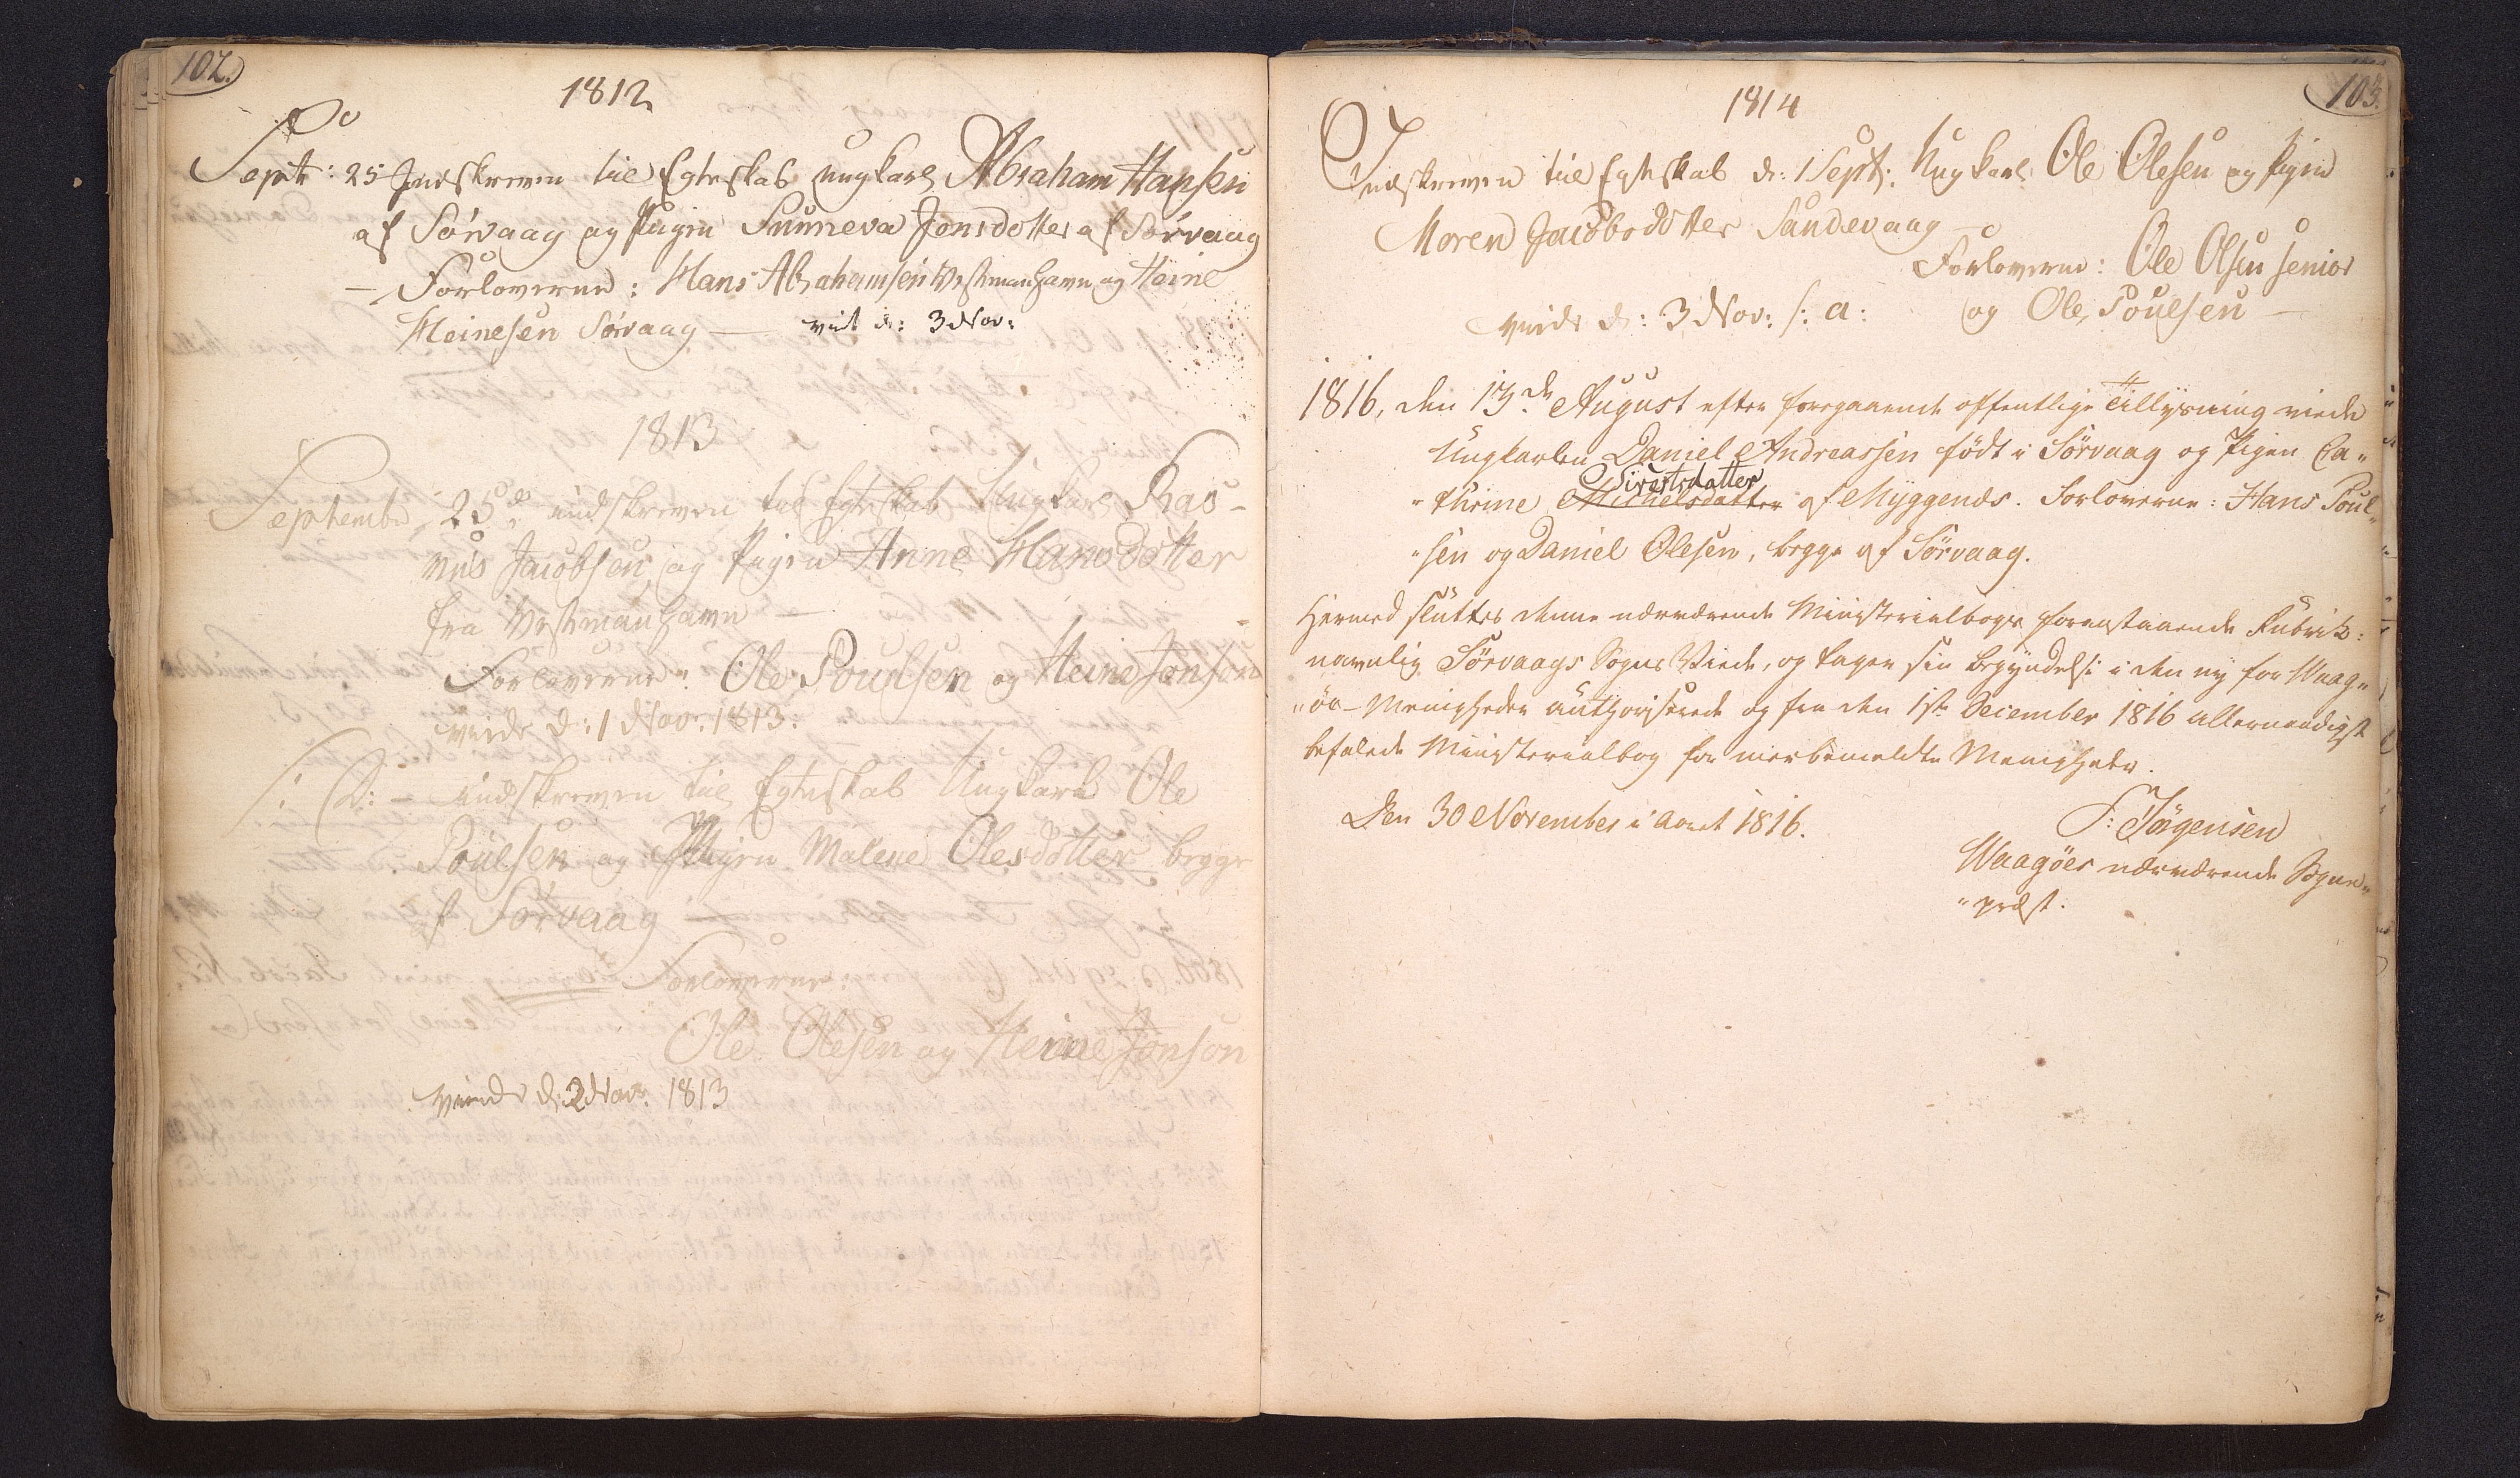 102.
1812
Sept: 25 Indskreven til Egteskab ungkarl Abraham Hansen
af Sörvaag og Pigen Sunneva Jonsdotter af Sörvaag
— Forloverne: Hans Abrahamsen Vestmanhavn og Heine
Heinesen Sörvaag — viet d: 3 Nov:
1813
Septembr 25de indskreven til Egteskab Ungkarl Ras-
mus Jacobsen og Pigen Anne Hansdotter
fra Vestmanhavn —
Forloverne: Ole Poulsen og Heine Jonson
viede d: 1 Nov: 1813.
/: D: - indskreven til Egteskab Ungkarl Ole
Poulsen og Pigen Malene Olesdotter begge
af Sörvaag
Forloverne:
Ole Olesen og Heine Jonson
viede d: 2 Nov: 1813
103.
1814
Indskreven til Egteskab d: 1 Sept: Ungkarl Ole Olesen og Pigen
Maren Jacobsdotter Sandevaag —
Forloverne: Ole Olsen senior
viede d: 3 Nov: s: a: og Ole Poulsen —
1816, den 13de August efter foregaaende offentlige Tillysning viede
Ungkarlen Daniel Andreassen født i Sörvaag og Pigen Ca„
Sivertsdatter
„thrine Michelsdatter af Myggends. Forloverne: Hans Poul„
„sen og Daniel Olesen, begge af Sörvaag.
Hermed sluttes denne nærværende Ministerialbogs foranstaaende Rubrik:
navnlig Sörvaags Sogns Viede, og tager sin Begyndelse i den ny for Waag„
„öe-Menigheder authoriserede og fra den 1ste December 1816 allernaadigst
befalede Ministerialbog for meerbemeldte Menigheder.
Den 30 November i Aaret 1816.
F: Jörgensen
Waagöes nærværende Sogne„
„præst.